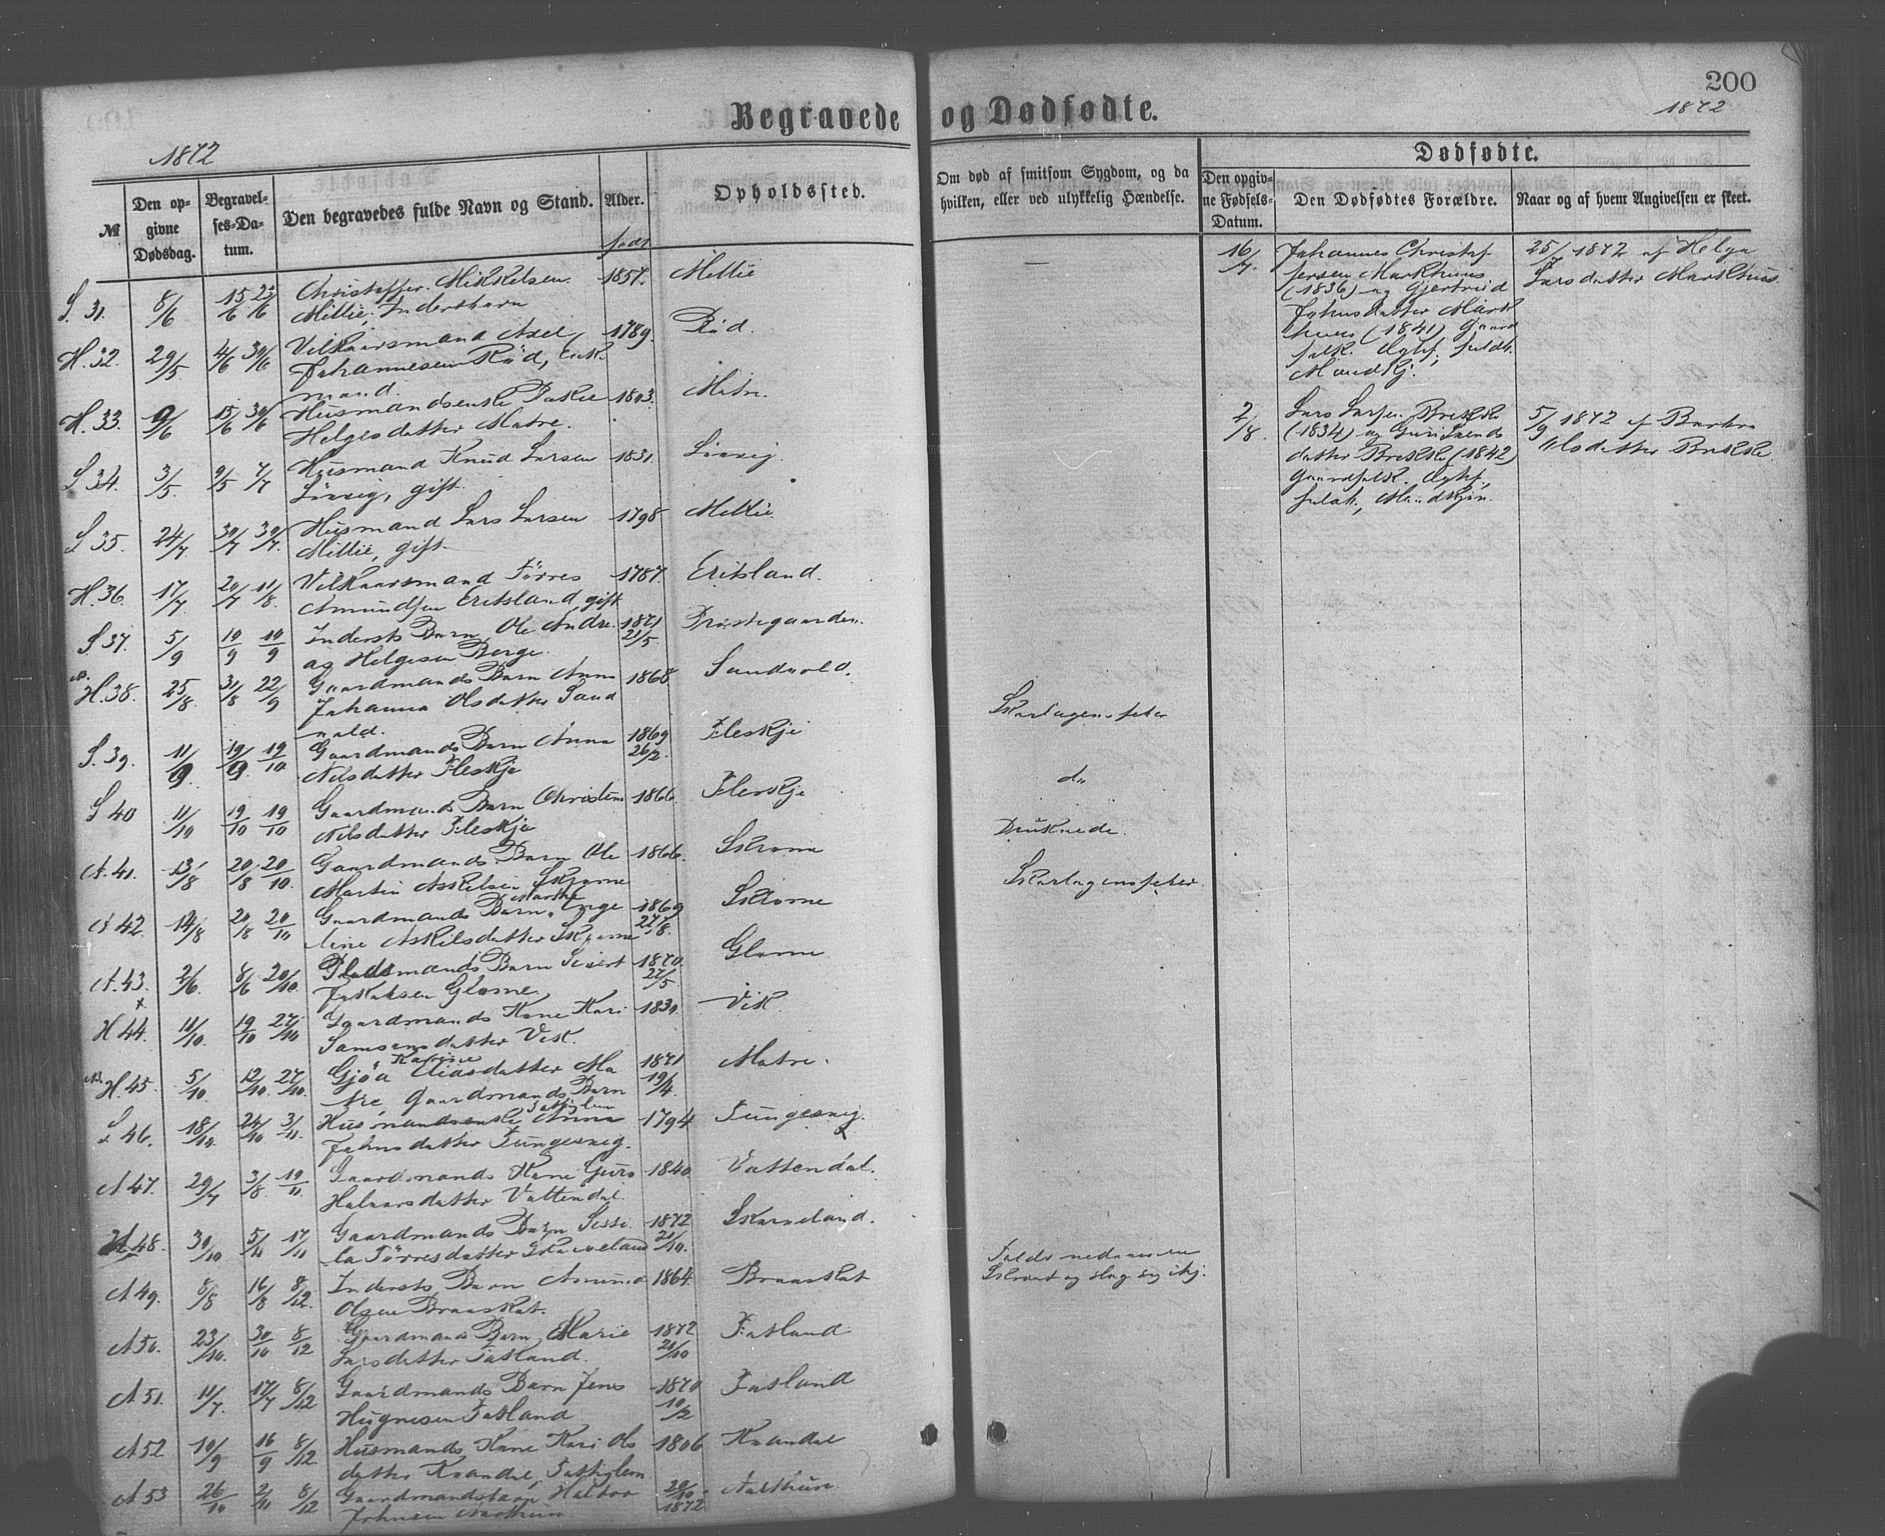 200
Begravede og Dødfødte.
1872
1872
№
Den opgivne Dødsdag.
Begravelses-Datum.
Den begravedes fulde Navn og Stand.
Alder.
født
Opholdssted.
Om død af smitsom Sygdom, og da hvilken, eller ved ulykkelig Hændelse.
Dødfødte.
Den opgivne Fødsels-Datum.
Den Dødfødtes Forældre.
Naar og af hvem Angivelsen er skeet.
S. 31. 8/6 15/6 23/6 Christopher Mikkelsen 1857. Millie
Millie, Inderstbarn
H. 32. 29/5 4/6 30/6 Vilkaarsmand Axel 1789. Rød.
Johannesen Rød, Enke
mand.
H. 33. 9/6 15/6 30/6 Husmandsenke 1803. Matre.
Helgesdatter Matre.
S 34. 3/5. 9/5 7/7 Husmand Knud Larsen 1831.
gift
S 35. 24/7 30/7 30/7. Husmand Lars Larsen 1798 Millie
Millie, gift
H. 36. 17/7. 20/7 11/8. Vilkaarsmand Tørres 1787. Eritsland.
Amundsen Eritsland, gift
S 37. 5/9 19/9 19/9 Indersts Barn Ole Andre 1871 21/5 Præstegaarden.
as Helgesen Berge.
H. 38. 25/8. 31/8 22/9 Gaardmands Barn Anna 1868 Sandvold.
Johanna Olsdatter Sand
vold.
Skarlagensfeber
S. 39. 11/9 19/9. 19/10 Gaardmands Barn Anna 1869 26/2. Fleskje
Nilsdatter Fleskje
do
S 40 11/10 19/10 19/10 Gaardmands Barn Christine 1866. Fleskje
Nilsdatter Fleskje
Druknede.
A. 41. 13/8 20/8 20/10. Gaardmands Barn Ole 1866.
Martin Askelsen
Skarlagensfeber.
A 42. 14/8 20/8 20/10 Gaardmands Barn, Marthe Inge 1869 27/8.
line Askilsdatter
A. 43. 2/6. 8/6 20/10. Pladsmands Barn Sivert 1870. 27/5
H 44. 11/10. 19/10 27/10 Gaardmands Kone Kari 1830. Vik.
Samsonsdatter Vik.
H. 45. 5/10 12/10. 27/10. Gjøa Karine datter Ma 1871 19/4. Matre.
tre, Gaardmands Barn
S 46. 18/10. 24/10 3/11. Husmandsenke Anna 1794 Tungesvig.
Johnsdatter Tungesvig.
A 47. 29/7 3/8. 10/11. Gaardmands Kone Guro 1840. Vattendal.
Halvorsdatter Vattendal.
48. 30/10 5/11 17/11 Gaardmands Barn Sissi 1872 21/10. Skarveland.
la Tørresdatter Skarveland
A 49. 8/8 16/8 8/12. Indersts Barn Amund 1864. Braaskat
Olsen Braaskat.
A 50. 23/10. 30/10 8/12 Gaardmands Barn, Marie 1872 21/10 Fatland
Larsdatter Fatland.
A 51. 11/7. 17/7 8/12 Gaardmands Barn Jens 1870 10/2 Fatland
Hugnesen Fatland
A 52 10/9 16/9 8/12 Husmands Kone Kari Ols 1806 Kvandal
datter Kvandal, Fattiglem
A 53 26/10 2/11 8/12 Gaardmandsbarn Haldor 20/10 1872
Johnsen
16/7. Johannes Christof
fersen Markhus
(1836) og Gjertrud
Johnsdatter Mark
hus (1841) Gaard
folk. Ægtef.; fuldt.
Mandkj.
25/7 1872 af Helga
Larsdatter Markhus.
2/8. Lars Larsen Brekke
(1834) og Guri Svends
datter Brekke (1842)
Gaardfolk. Ægtef,
Mandkjøn.
5/9 1872 af Barbro
Olsdatter Brekke